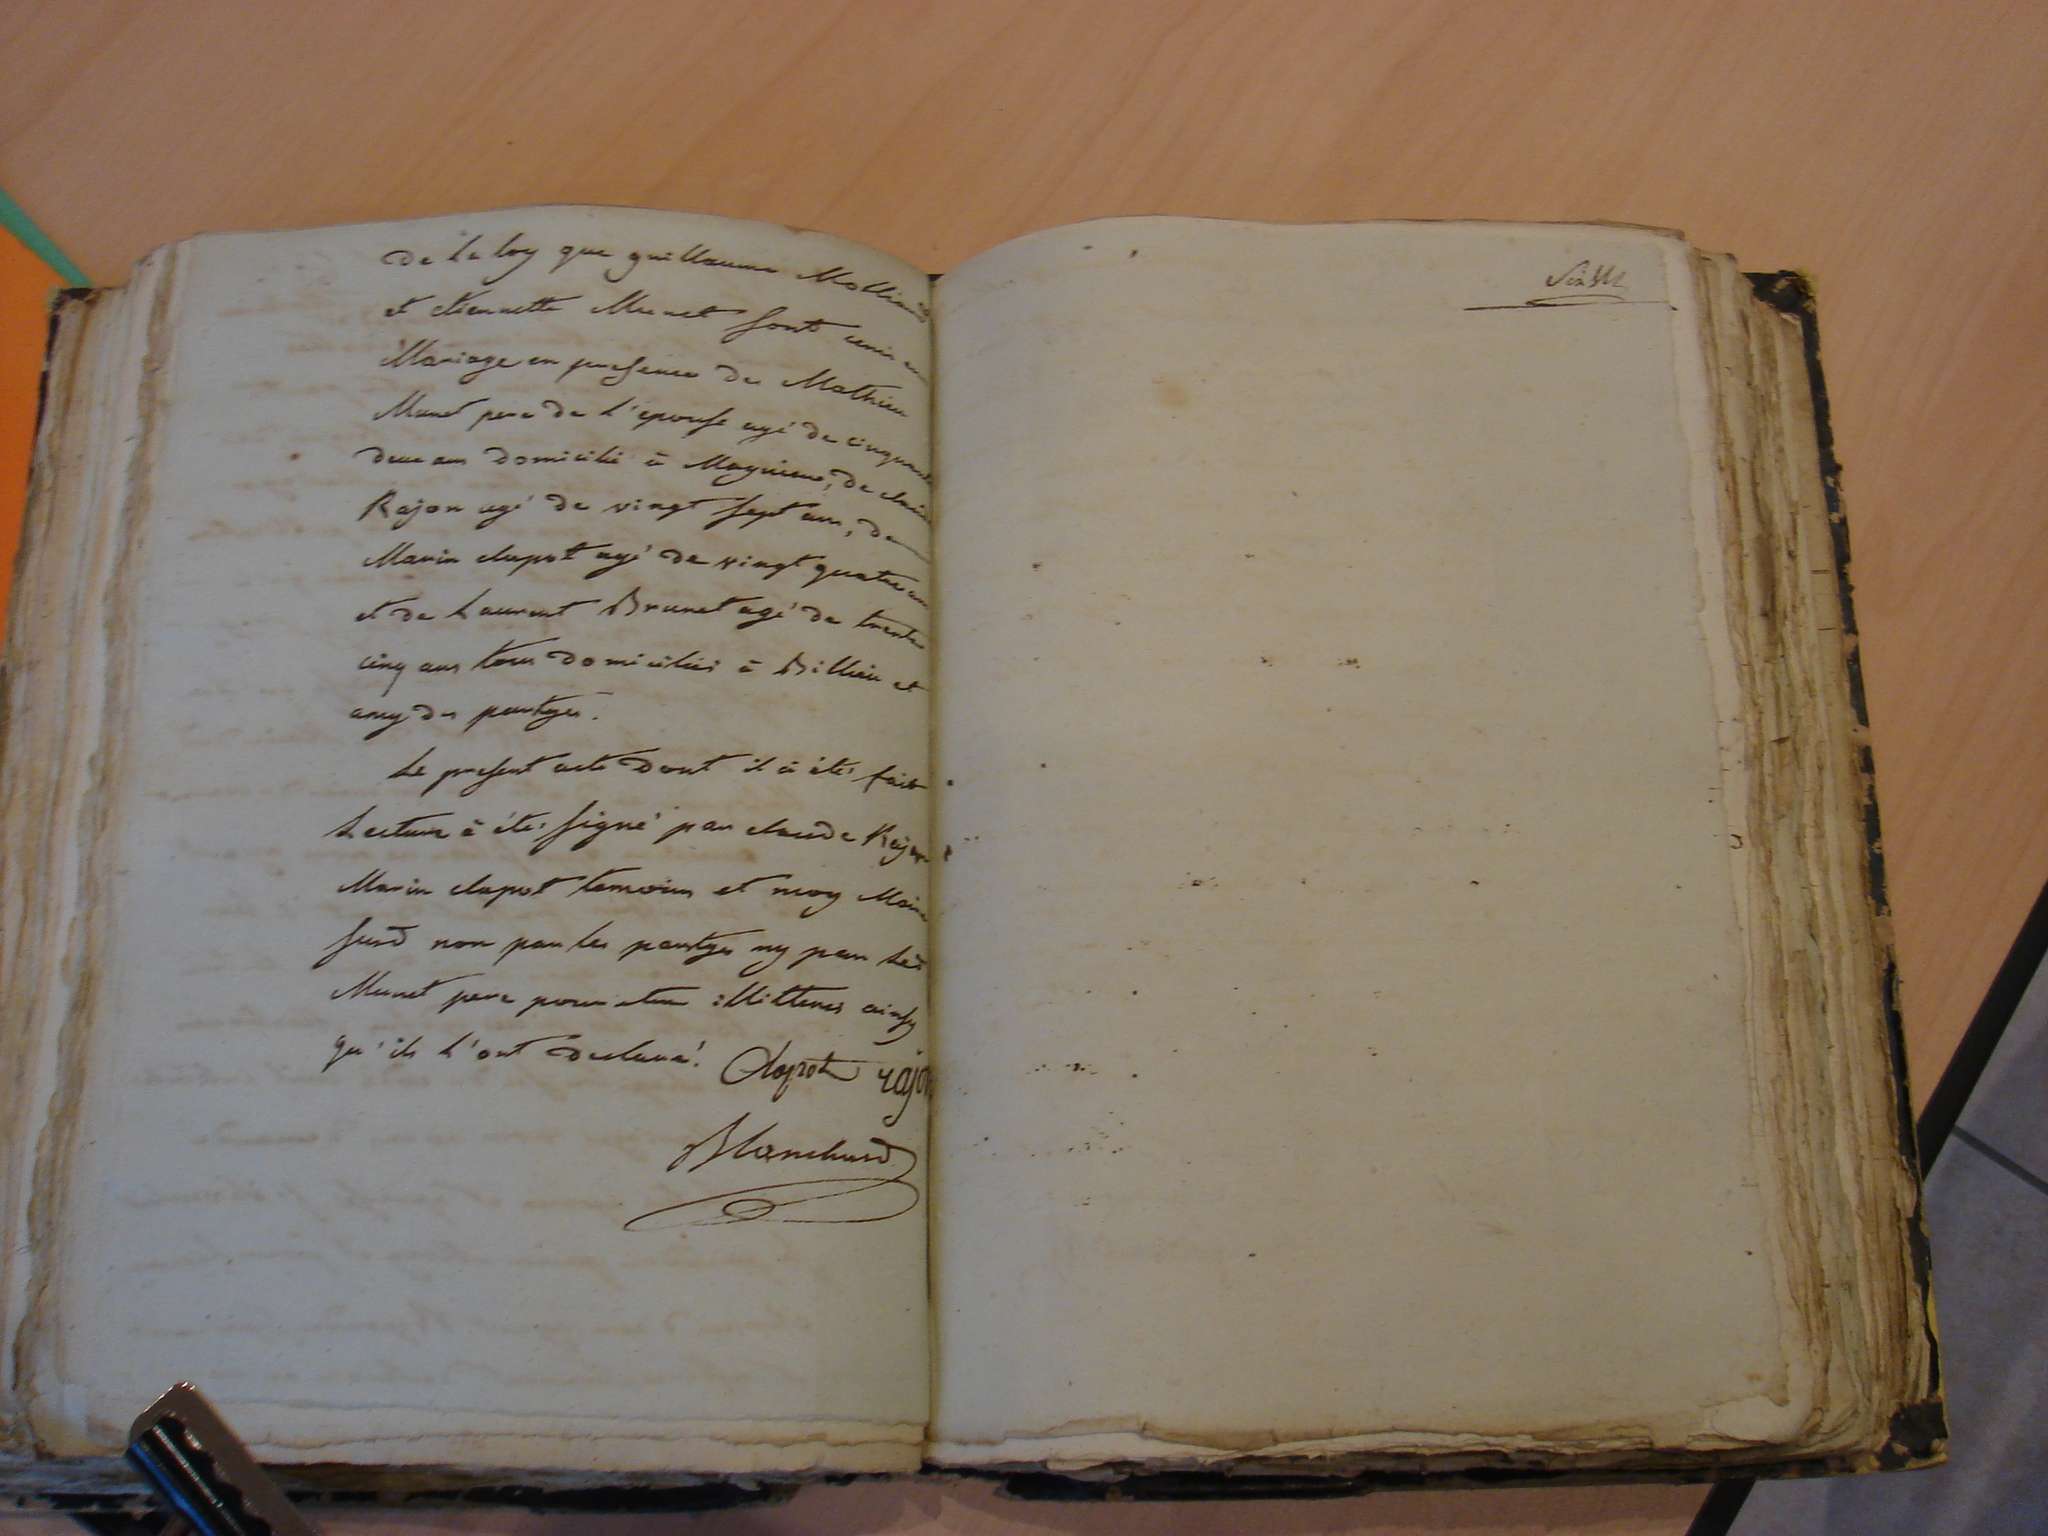 de la loy que guillaume Molliard
et etiennette Munet sont unis en
Mariage en presence de Mathieu
Munet pere de l'epouse agé de cinquante
deux ans domicilié à Magnieu, de claude
Rajon agé de vingt sept ans, de
Marin clapot agé de vingt quatre ans
et de Laurent Brunet agé de trente
cinq ans tous domiciliés à Billieu et
amy des partyes.
Le present acte dont il à été fait
Lecture à été signé par claude Rajon
Marin clapot temoins et moy Maire
susd non par les partyes ny par led
Munet pere pour etre illitterés ainsy
qu'ils l'ont declaré. Clapot rajon
Blanchard